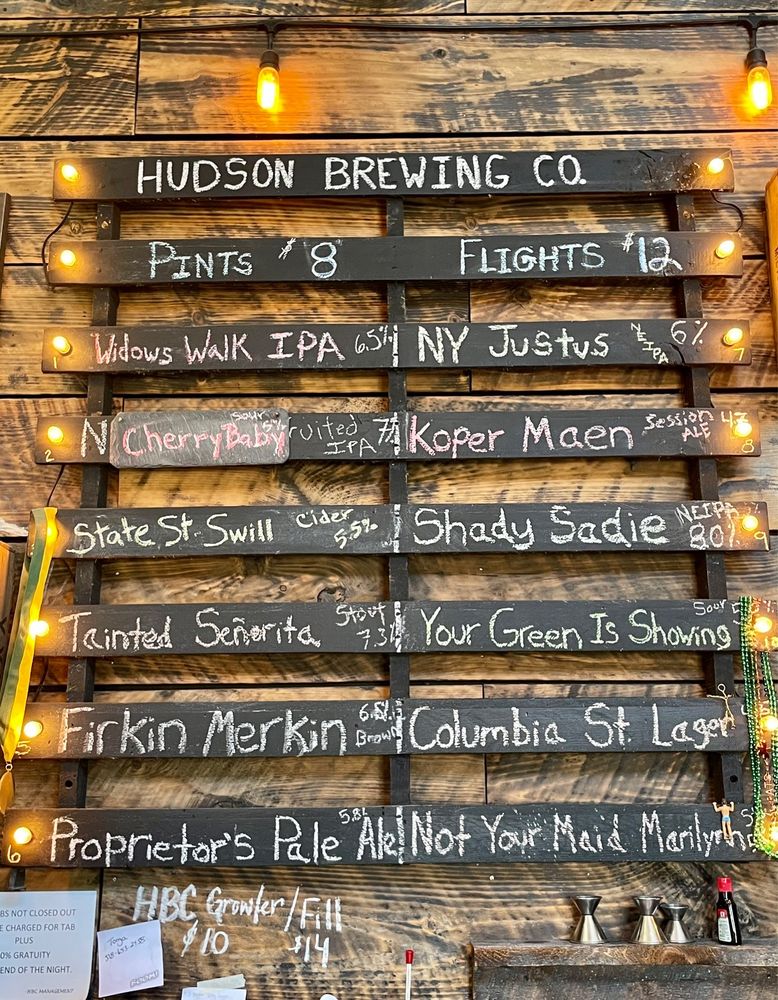 HUDSON BREWING CO.
PINTS $8 FLIGHTS $12
1 Widows Walk IPA 6.5% NY Justus NE IPA 6% 7
2 N CherryBaby Sour 5% ruited IPA 7% Koper Maen Session ALE 8
State St. Swill Cider 5.5% Shady Sadie NEIPA 9
Tainted Señorita Stout 7.3 Your Green Is Showing Sour
5 Firkin Merkin Brown Columbia St. Lager
6 Proprietor's Pale Ale 5.8% Not Your Maid Marilyn
HBC Growler/Fill
$10 $14
BS NOT CLOSED OUT
E CHARGED FOR TAB
PLUS
0% GRATUITY
END OF THE NIGHT.
HBC MANAGEMENT